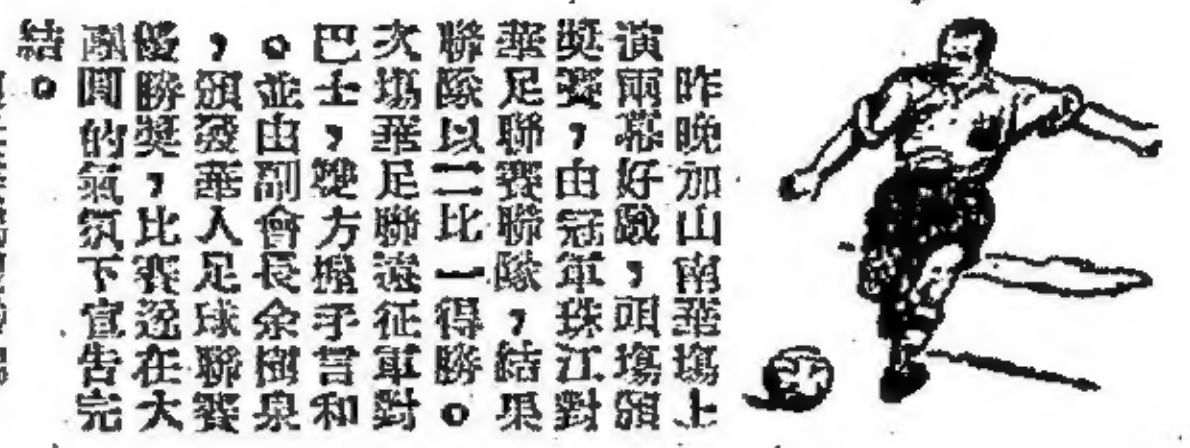 昨晚加山南華塲上
演兩幕好戲，頭塲頒
獎賽，由冠軍珠江對
華足聯賽聯隊，結果
聯隊以二比一得勝。
次塲華足聯遠征軍對
巴士，雙方握手言和
。並由副會長余樹泉
，頒發華人足球聯賽
優勝獎，比賽遂在大
團圓的氣氛下宣告完
結。